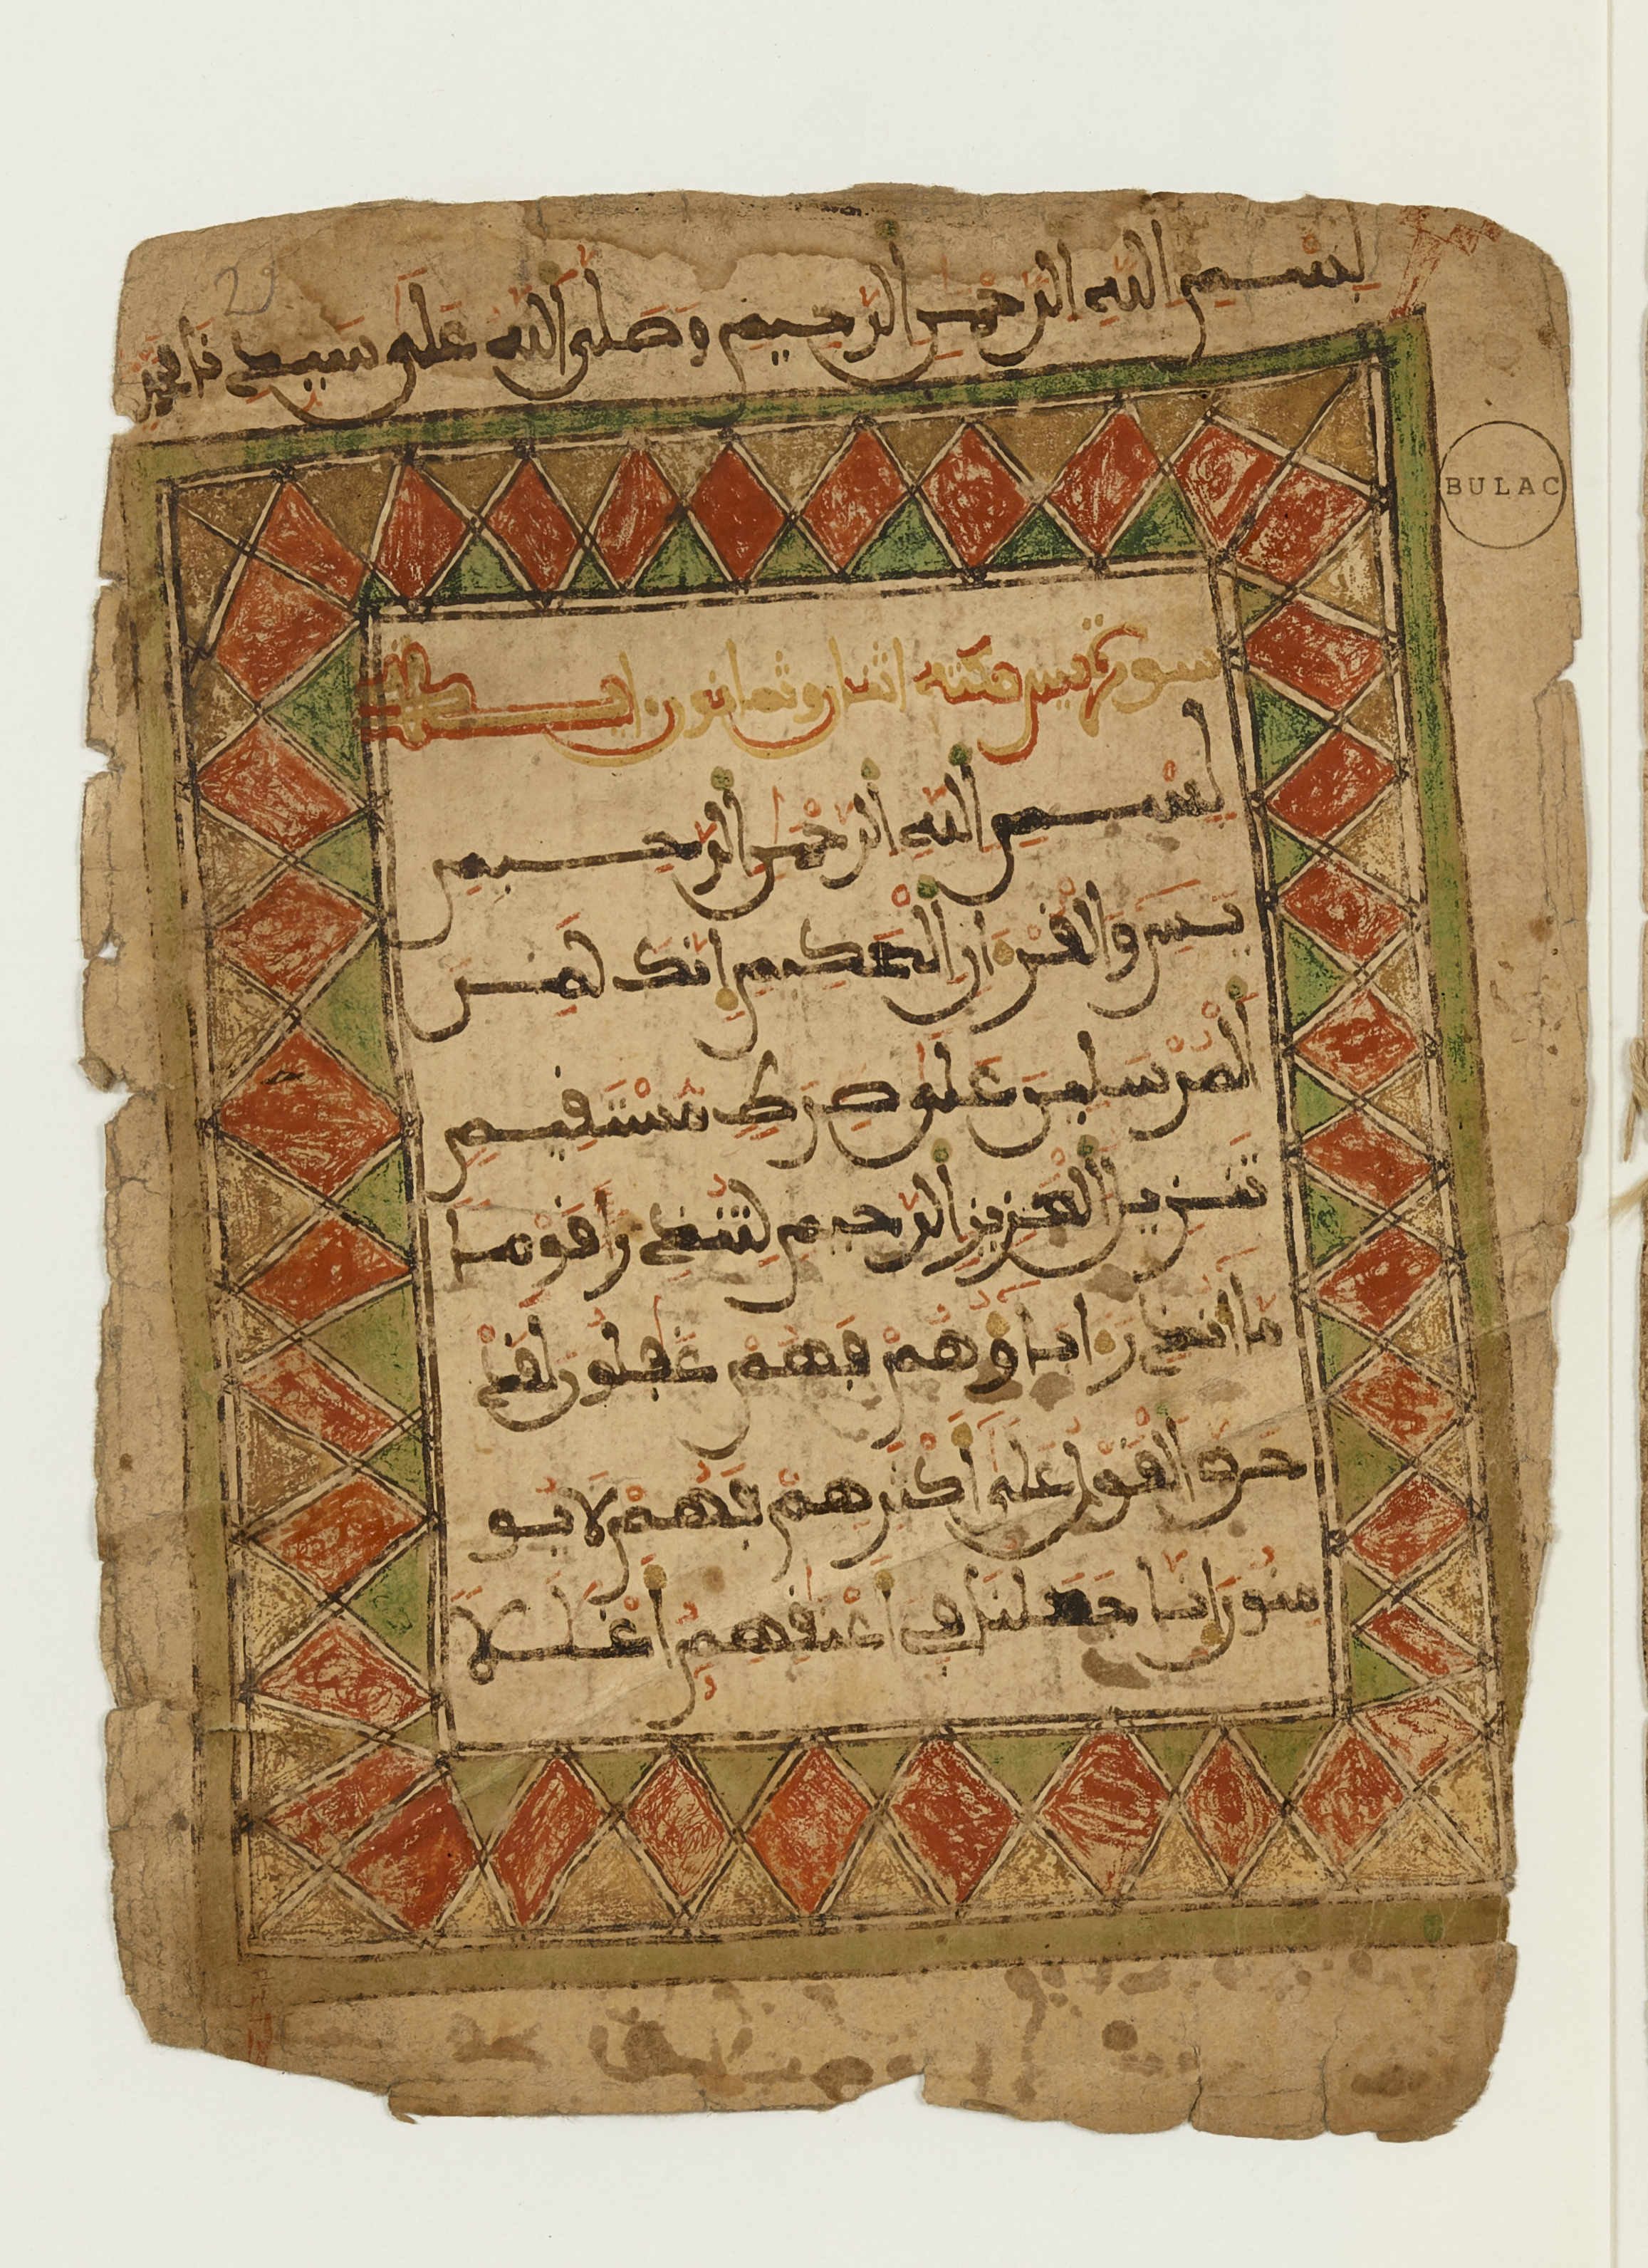 بِسْمِ اللَّهِ الرَّحْمَٰنِ الرَّحِيمِ وَصَلَّى اللَّهُ عَلَى سَيِّدِنَا
29
BULAC
سورة يس مكية اثنان وثمانون اية
بِسْمِ اللَّهِ الرَّحْمَٰنِ الرَّحِيمِ
يس وَالْقُرْءَانِ الْحَكِيمِ إِنَّكَ لَمِنَ
الْمُرْسَلِينَ عَلَى صِرَٰطٍ مُّسْتَقِيمٍ
تَنزِيلُ الْعَزِيزِ الرَّحِيمِ لِتُنذِرَ قَوْمًا
مَّا أُنذِرَ ءَابَاؤُهُمْ فَهُمْ غَٰفِلُونَ لَقَدْ
حَقَّ الْقَوْلُ عَلَى أَكْثَرِهِمْ فَهُمْ لَا يُو
مِنُونَ إِنَّا جَعَلْنَا فِي أَعْنَٰقِهِمْ أَغْلَٰلًا